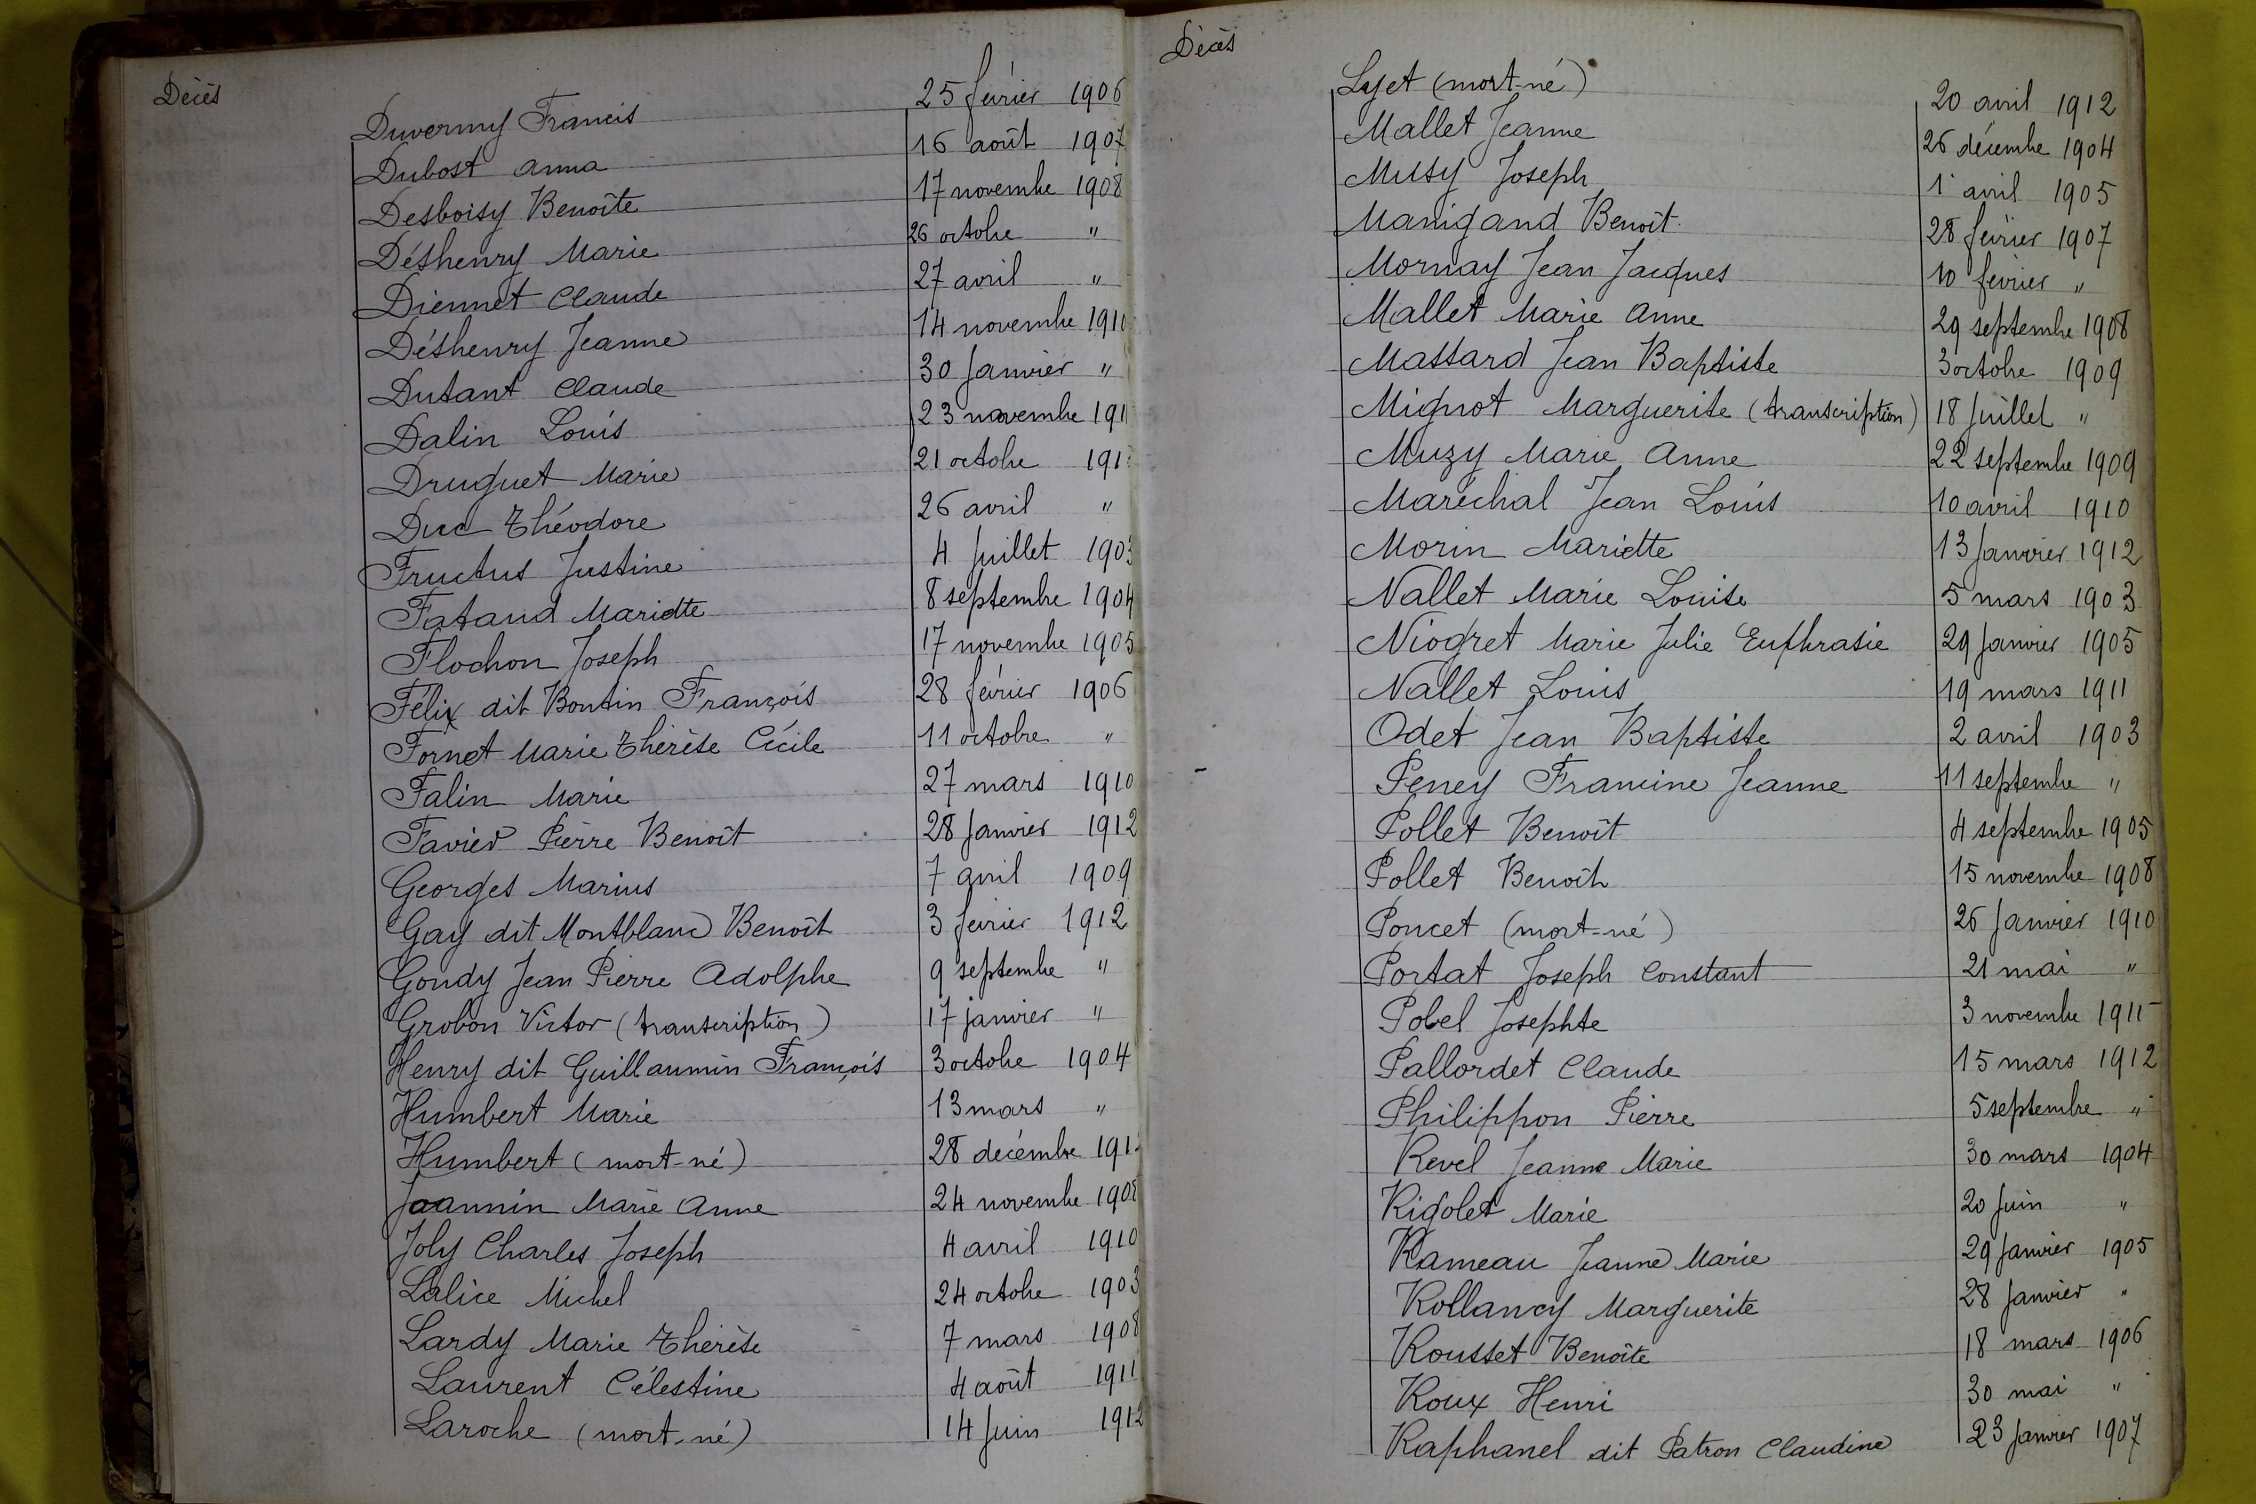 Décès
Duvernay Francis 25 février 1906
Dubost Anna 16 août 1907
Desboisy Benoîte 17 novembre 1908
Déshenry Marie 26 octobre "
Diennet Claude 27 avril "
Déshenry Jeanne 14 novembre 1910
Dutant Claude 30 Janvier "
Dalin Louis 23 novembre 191
Druguet Marie 21 octobre 191
Duc Théodore 26 avril "
Fructus Justine 4 Juillet 1903
Fataud Mariette 8 septembre 1904
Flochon Joseph 17 novembre 1905
Félix dit Bontin François 28 février 1906
Fornet Marie Thérèse Cécile 11 octobre "
Falin Marie 27 mars 1910
Favier Pierre Benoît 28 Janvier 1912
Georges Marius 7 avril 1909
Gay dit Montblanc Benoît 3 février 1912
Gondy Jean Pierre Adolphe 9 septembre "
Grobon Victor (transcription) 17 janvier "
Henry dit Guillaumin François 3 octobre 1904
Humbert Marie 13 mars "
Humbert (mort-né) 28 décembre 191
Joannin Marie Anne 24 novembre 1908
Joly Charles Joseph 4 avril 1910
Lalice Michel 24 octobre 1903
Lardy Marie Thérèse 7 mars 1908
Laurent Célestine 4 août 1911
Laroche (mort-né) 14 Juin 1912
Décès
Lyet (mort-né) 20 avril 1912
Mallet Jeanne 26 décembre 1904
Musy Joseph 1er avril 1905
Manigand Benoît 28 février 1907
Mornay Jean Jacques 10 février "
Mallet Marie Anne 29 septembre 1908
Massard Jean Baptiste 3 octobre 1909
Mignot Marguerite (transcription) 18 Juillet "
Muzy Marie Anne 22 septembre 1909
Maréchal Jean Louis 10 avril 1910
Morin Mariette 13 Janvier 1912
Nallet Marie Louise 5 mars 1903
Niogret Marie Julie Euphrasie 29 Janvier 1905
Nallet Louis 19 mars 1911
Odet Jean Baptiste 2 avril 1903
Peney Francine Jeanne 11 septembre "
Pollet Benoît 4 septembre 1905
Pollet Benoît 15 novembre 1908
Poncet (mort-né) 26 Janvier 1910
Portat Joseph Constant 21 mai "
Pobel Josephte 3 novembre 1911
Pallordet Claude 15 mars 1912
Philippon Pierre 5 septembre "
Revel Jeanne Marie 30 mars 1904
Rigolet Marie 20 Juin "
Rameau Jeanne Marie 29 Janvier 1905
Rollancy Marguerite 28 Janvier "
Rousset Benoîte 18 mars 1906
Roux Henri 30 mai "
Raphanel dit Patron Claudine 23 Janvier 1907